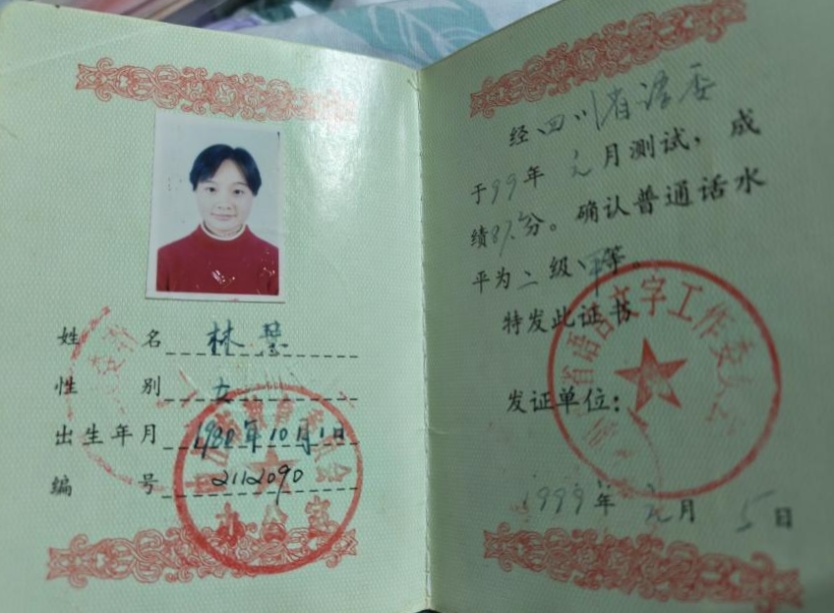 姓 名 林琴
性 别 女
出生年月 1980年10月1日
编 号 2112090
办公室
经四川省语委
于99年元月测试，成
绩87.5分。确认普通话水
平为二级甲等。
特发此证书
省语言文字工作委员会
发证单位：
1999年元月5日